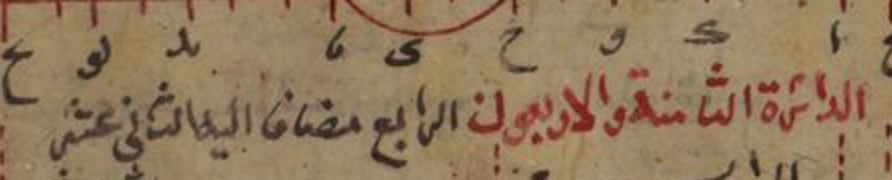 ا ح و ح ى يا يد يو ح
الدائرة الثامنة والاربعون الرابع مضافا اليه الثاني عشر